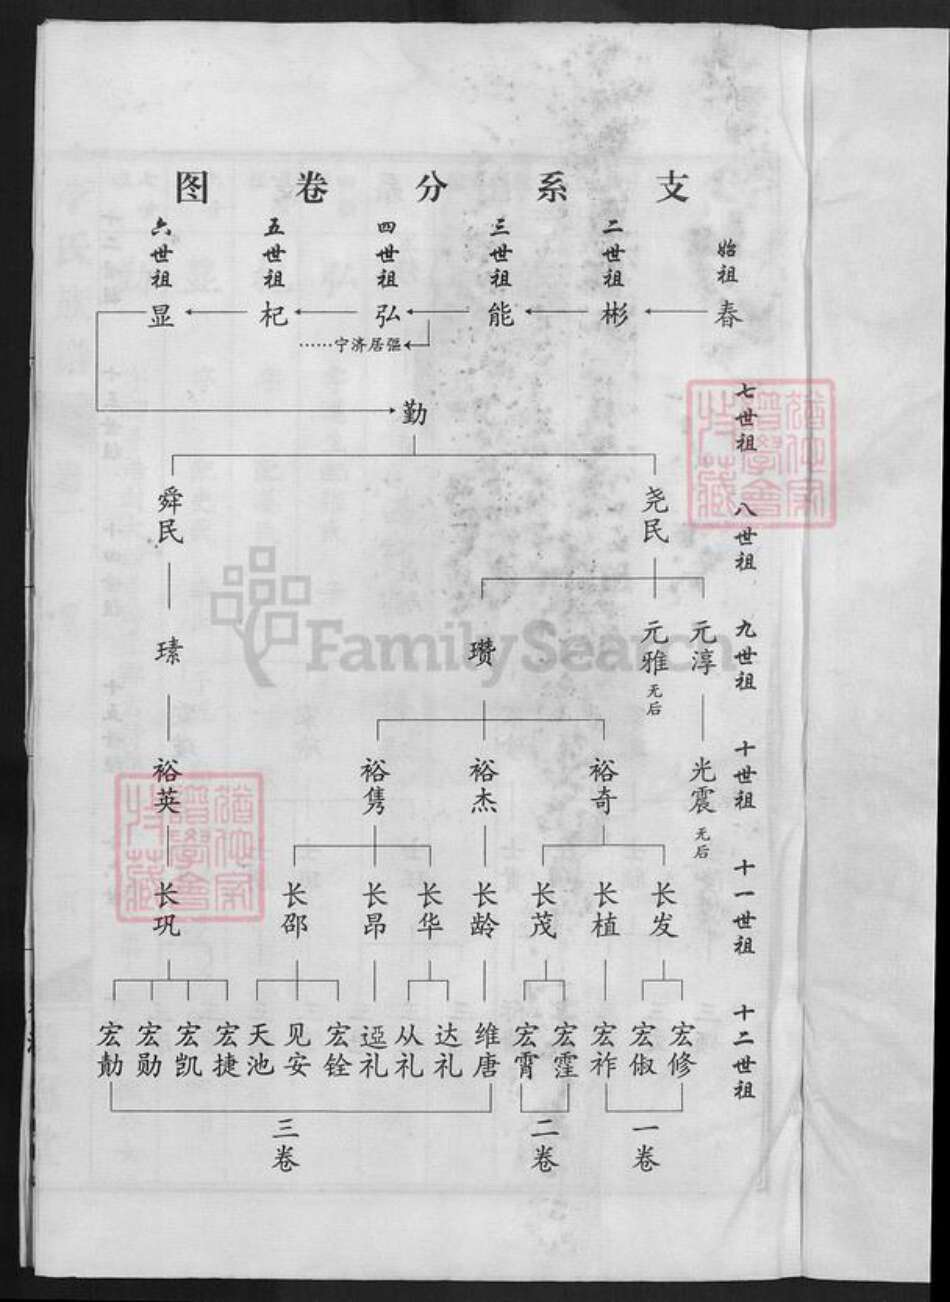 支系分卷图
始祖 二世祖 三世祖 四世祖 五世祖 六世祖
春 彬 能 弘 杞 显
宁济居强……
七世祖
勤
八世祖
尧民 舜民
九世祖
元淳 元雅 瓒 瑧
无后
十世祖
光震 裕奇 裕杰 裕隽 裕英
无后
十一世祖
长发 长植 长茂 长龄 长华 长昂 长邵 长巩
十二世祖
宏修 宏俶 宏祚 宏霔 宏霄 维唐 达礼 从礼 迳礼 宏铨 见安 天池 宏捷 宏凯 宏勋 宏勣
一卷 二卷 三卷
FamilySearch